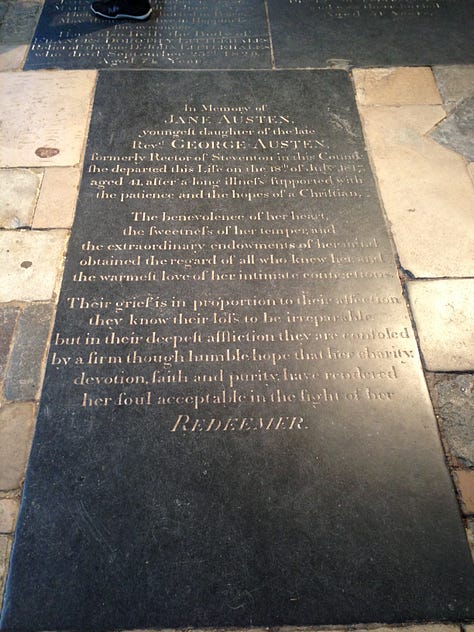 the Body of
FRANCES DOROTHY LITTLEHALES
Relict of the late Dr. JOHN LITTLEHALES
Who died September
Aged 74 Years
Aged 51 Years
In Memory of
JANE AUSTEN,
youngest daughter of the late
Revd. GEORGE AUSTEN,
formerly Rector of Steventon in this County
she departed this Life on the 18th of July 1817,
aged 41, after a long illneſs supported with
the patience and the hopes of a Christian.
The benevolence of her heart,
the sweetneſs of her temper, and
the extraordinary endowments of her mind
obtained the regard of all who knew her, and
the warmest love of her intimate connections.
Their grief is in proportion to their affection
they know their loſs to be irreparable,
but in their deepest affliction they are consoled
by a firm though humble hope that her charity,
devotion, faith and purity, have rendered
her soul acceptable in the sight of her
REDEEMER.